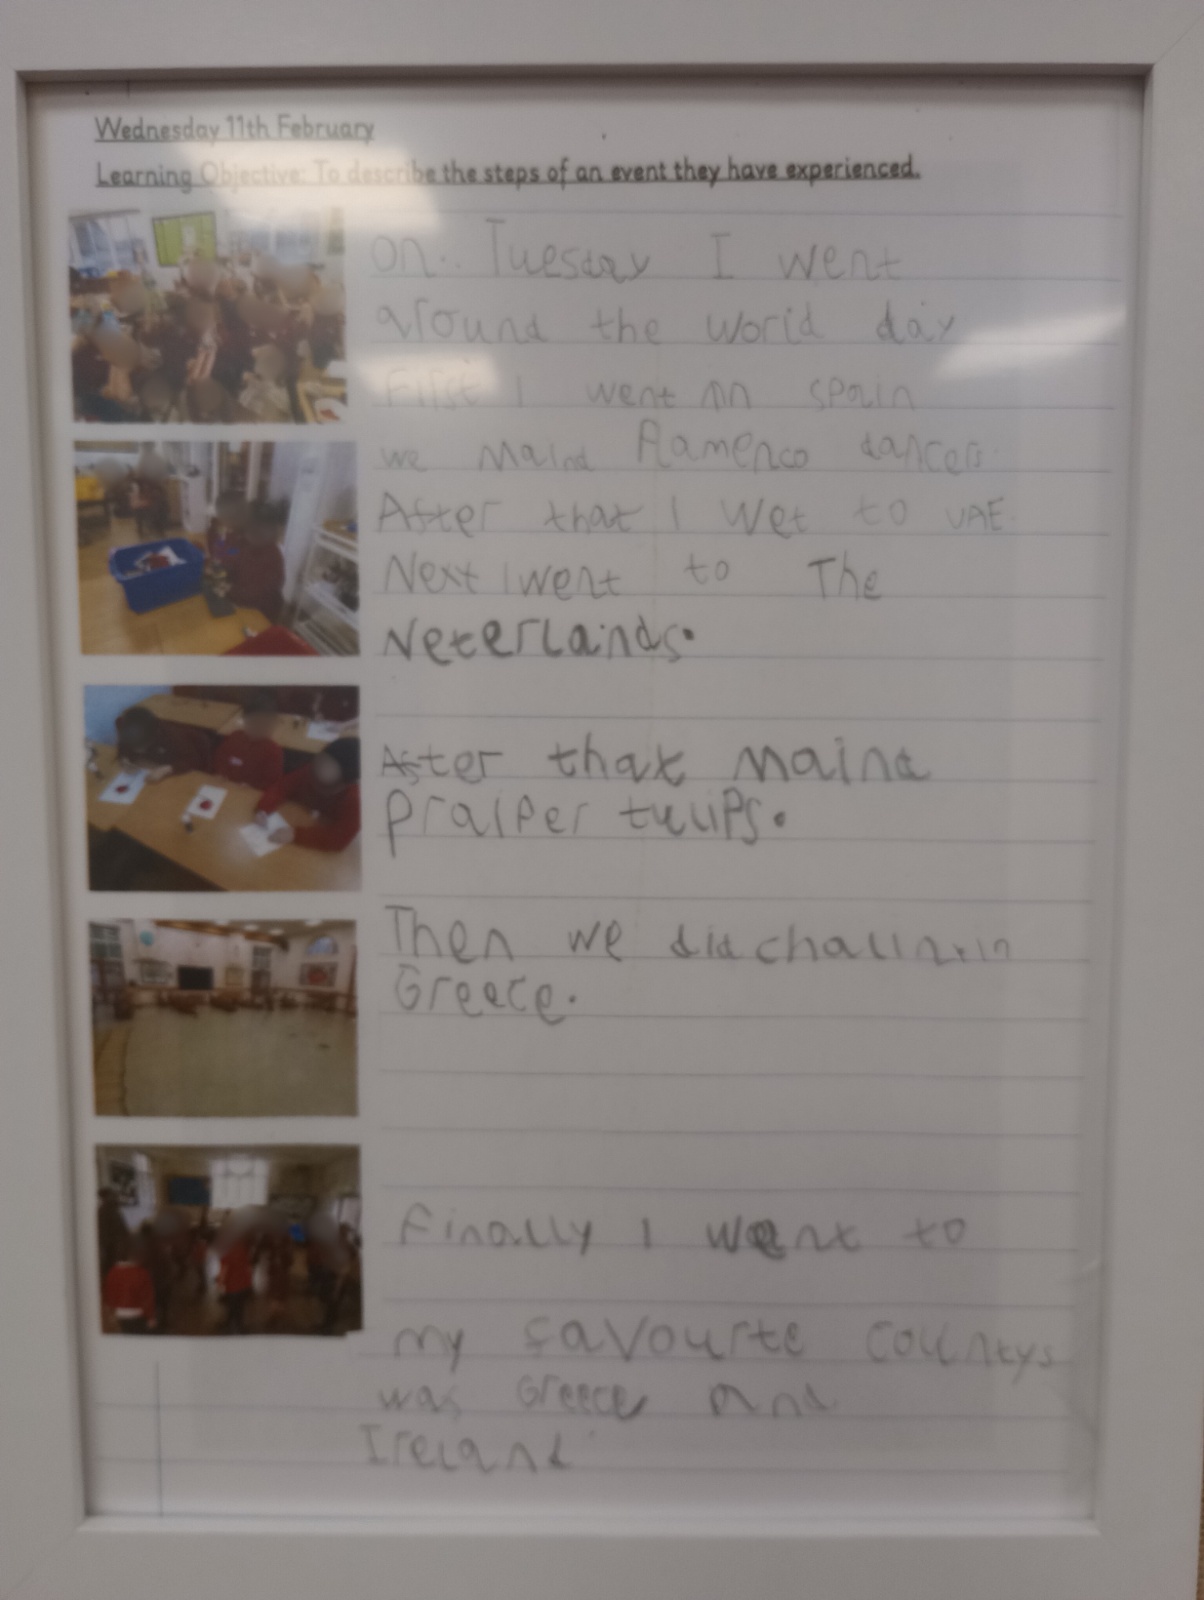 Wednesday 11th February
Learning Objective: To describe the steps of an event they have experienced.
On. Tuesday I went
around the world day
First I went in spain
we maind flamenco dancers.
After that I wet to UAE.
Next I went to The
Neterlainds.
After that maind
praiper tulips.
Then we did in
Greece.
finally I went to
my favourte countys
was Greece and
Ireland